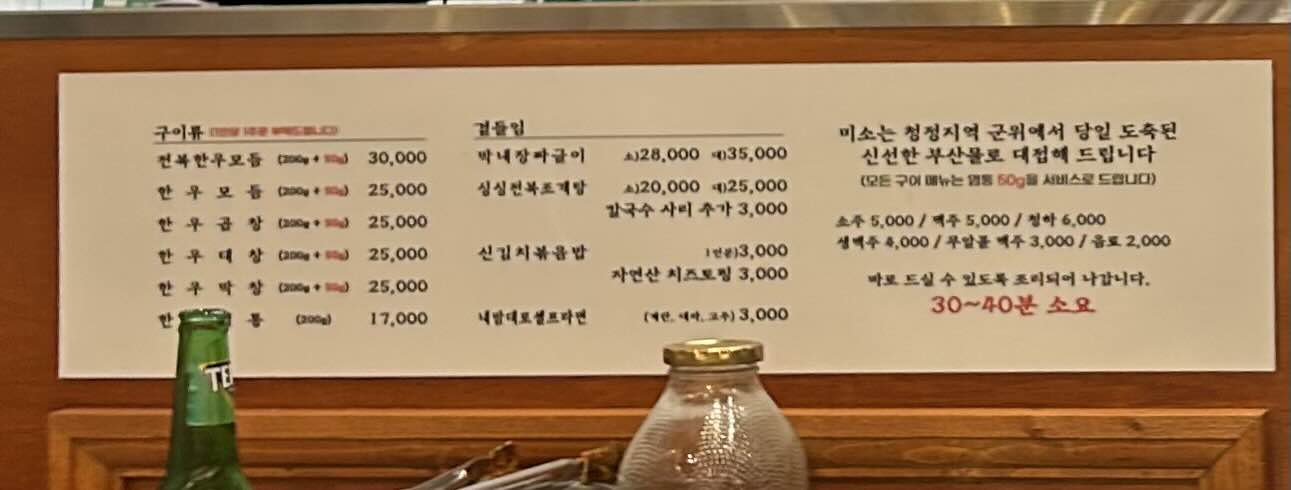 구이류 (1인당 1주문 부탁드립니다)
전복한우모듬 (200g + 50g) 30,000
한우모듬 (200g + 50g) 25,000
한우곱창 (200g + 50g) 25,000
한우대창 (200g + 50g) 25,000
한우막창 (200g + 50g) 25,000
한 통 (200g) 17,000
곁들임
막내장짜글이 소)28,000 대)35,000
싱싱전복조개탕 소)20,000 대)25,000
칼국수 사리 추가 3,000
신김치볶음밥 1인분)3,000
자연산 치즈토핑 3,000
내맘대로셀프라면 (계란, 대파, 고추) 3,000
미소는 청정지역 군위에서 당일 도축된
신선한 부산물로 대접해 드립니다
(모든 구이 메뉴는 염통 50g을 서비스로 드립니다)
소주 5,000 / 맥주 5,000 / 청하 6,000
생맥주 4,000 / 무알콜 맥주 3,000 / 음료 2,000
바로 드실 수 있도록 조리되어 나갑니다.
30~40분 소요
TE